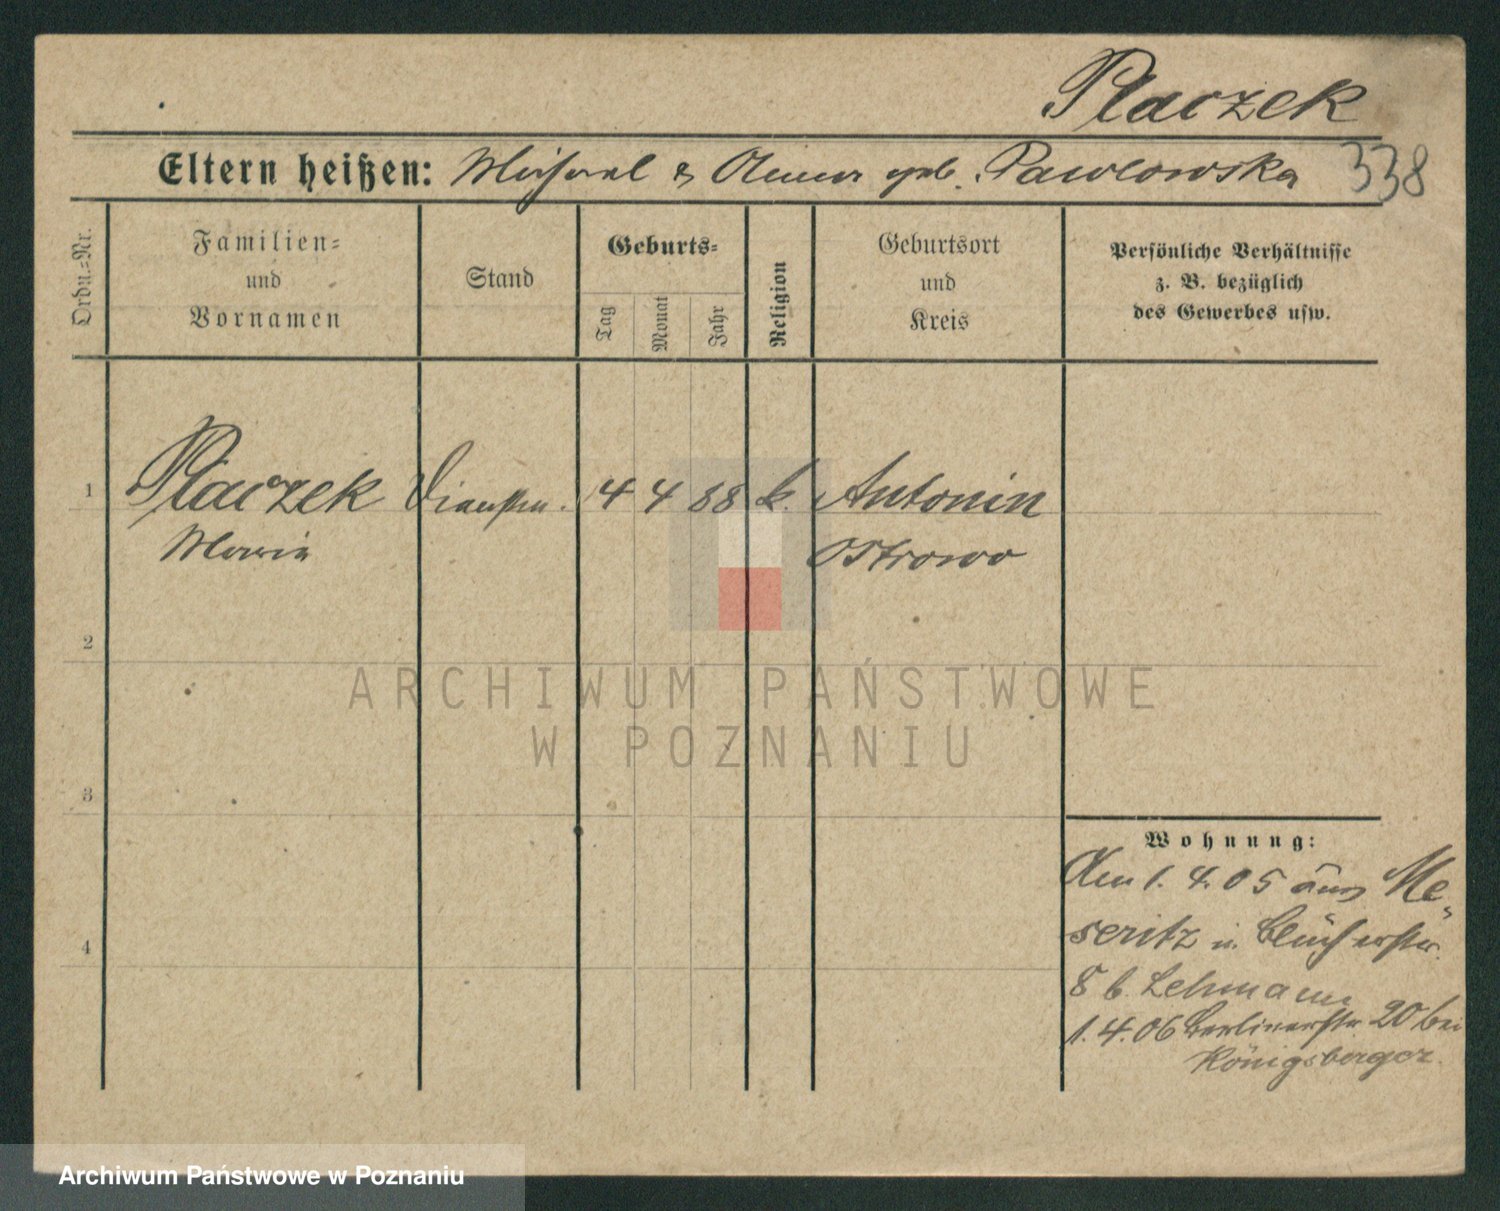 Placzek
Eltern heißen: Michael & geb. Pawlowska 338
Ordn.=Nr.
Familien=
und
Vornamen
Stand
Geburts=
Tag
Monat
Jahr
Religion
Geburtsort
und
Kreis
Persönliche Verhältnisse
z. B. bezüglich
des Gewerbes usw.
1 Placzek Dienstm. 4 4 88 k. Antonin
Maria Ostrowo
2
3
4
Wohnung:
Am 1. 4. 05 aus Me-
seritz n. Blücherstr.
8 b. Lehmann
1. 4. 06 Berlinerstr. 20 bei
Königsberger.
ARCHIWUM PAŃSTWOWE
W POZNANIU
Archiwum Państwowe w Poznaniu